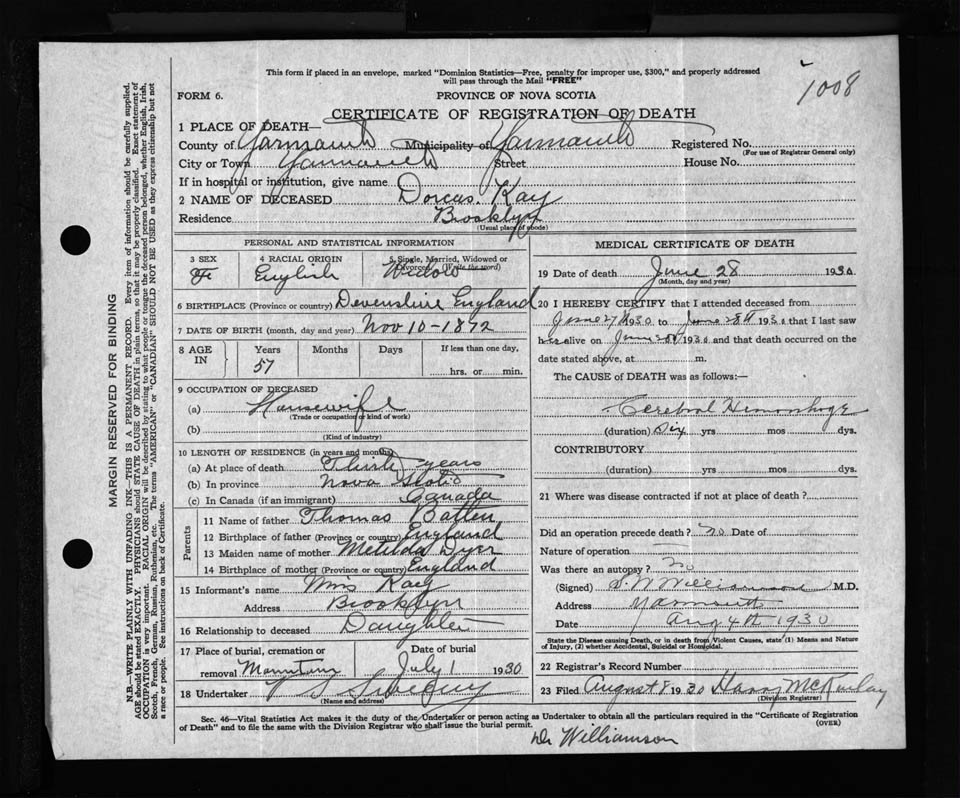 This form if placed in an envelope, marked "Dominion Statistics—Free, penalty for improper use, $300," and properly addressed
will pass through the Mail "FREE"
1008
FORM 6.
PROVINCE OF NOVA SCOTIA
CERTIFICATE OF REGISTRATION OF DEATH
1 PLACE OF DEATH—
County of Yarmouth Municipality of Yarmouth Registered No.
(For use of Registrar General only)
City or Town Yarmouth Street House No.
If in hospital or institution, give name
2 NAME OF DECEASED Dorcas. Kay
Residence Brooklyn
(Usual place of abode)
PERSONAL AND STATISTICAL INFORMATION
3 SEX 4 RACIAL ORIGIN 5 Single, Married, Widowed or
Divorced (Write the word)
F English Widow
6 BIRTHPLACE (Province or country) Devenshire England
7 DATE OF BIRTH (month, day and year) Nov 10-1872
8 AGE IN Years Months Days If less than one day,
57 hrs. or min.
9 OCCUPATION OF DECEASED
(a) Housewife
(Trade or occupation or kind of work)
(b)
(Kind of industry)
10 LENGTH OF RESIDENCE (in years and months)
(a) At place of death years
(b) In province Nova Scotia
(c) In Canada (if an immigrant) Canada
Parents
11 Name of father Thomas Batten
12 Birthplace of father (Province or country) England
13 Maiden name of mother Metilda
14 Birthplace of mother (Province or country) England
15 Informant's name Kay
Address Brooklyn
16 Relationship to deceased Daughter
17 Place of burial, cremation or Date of burial
removal July 1 1930
18 Undertaker
(Name and address)
MEDICAL CERTIFICATE OF DEATH
19 Date of death June 28 1930
(Month, day and year)
20 I HEREBY CERTIFY that I attended deceased from
June 27th 1930 to June 28th 1930 that I last saw
her alive on June 1930 and that death occurred on the
date stated above, at m.
The CAUSE of DEATH was as follows:—
Cerebral Hemorrhage
(duration) yrs mos dys.
CONTRIBUTORY
(duration) yrs mos dys.
21 Where was disease contracted if not at place of death?
Did an operation precede death? no Date of
Nature of operation
Was there an autopsy? no
(Signed) Williamson M.D.
Address Yarmouth
Date Aug 4th 1930
State the Disease causing Death, or in death from Violent Causes, state (1) Means and Nature
of Injury, (2) whether Accidental, Suicidal or Homicidal.
22 Registrar's Record Number
23 Filed August 8 1930 Harry McKinlay
(Division Registrar)
Sec. 46—Vital Statistics Act makes it the duty of the Undertaker or person acting as Undertaker to obtain all the particulars required in the "Certificate of Registration
of Death" and to file the same with the Division Registrar who shall issue the burial permit. (OVER)
Dr Williamson
MARGIN RESERVED FOR BINDING
N.B.—WRITE PLAINLY WITH UNFADING INK—THIS IS A PERMANENT RECORD. Every item of information should be carefully supplied.
AGE should be stated EXACTLY. PHYSICIANS should STATE CAUSE OF DEATH in plain terms, so that it may be properly classified. Exact statement of
OCCUPATION is very important. RACIAL ORIGIN will be described by stating to what people or tongue the deceased person belonged, whether English, Irish,
Scotch, French, German, Russian, Ruthenian, etc. The terms "AMERICAN" or "CANADIAN" SHOULD NOT BE USED as they express citizenship but not
a race or people. See instructions on back of Certificate.